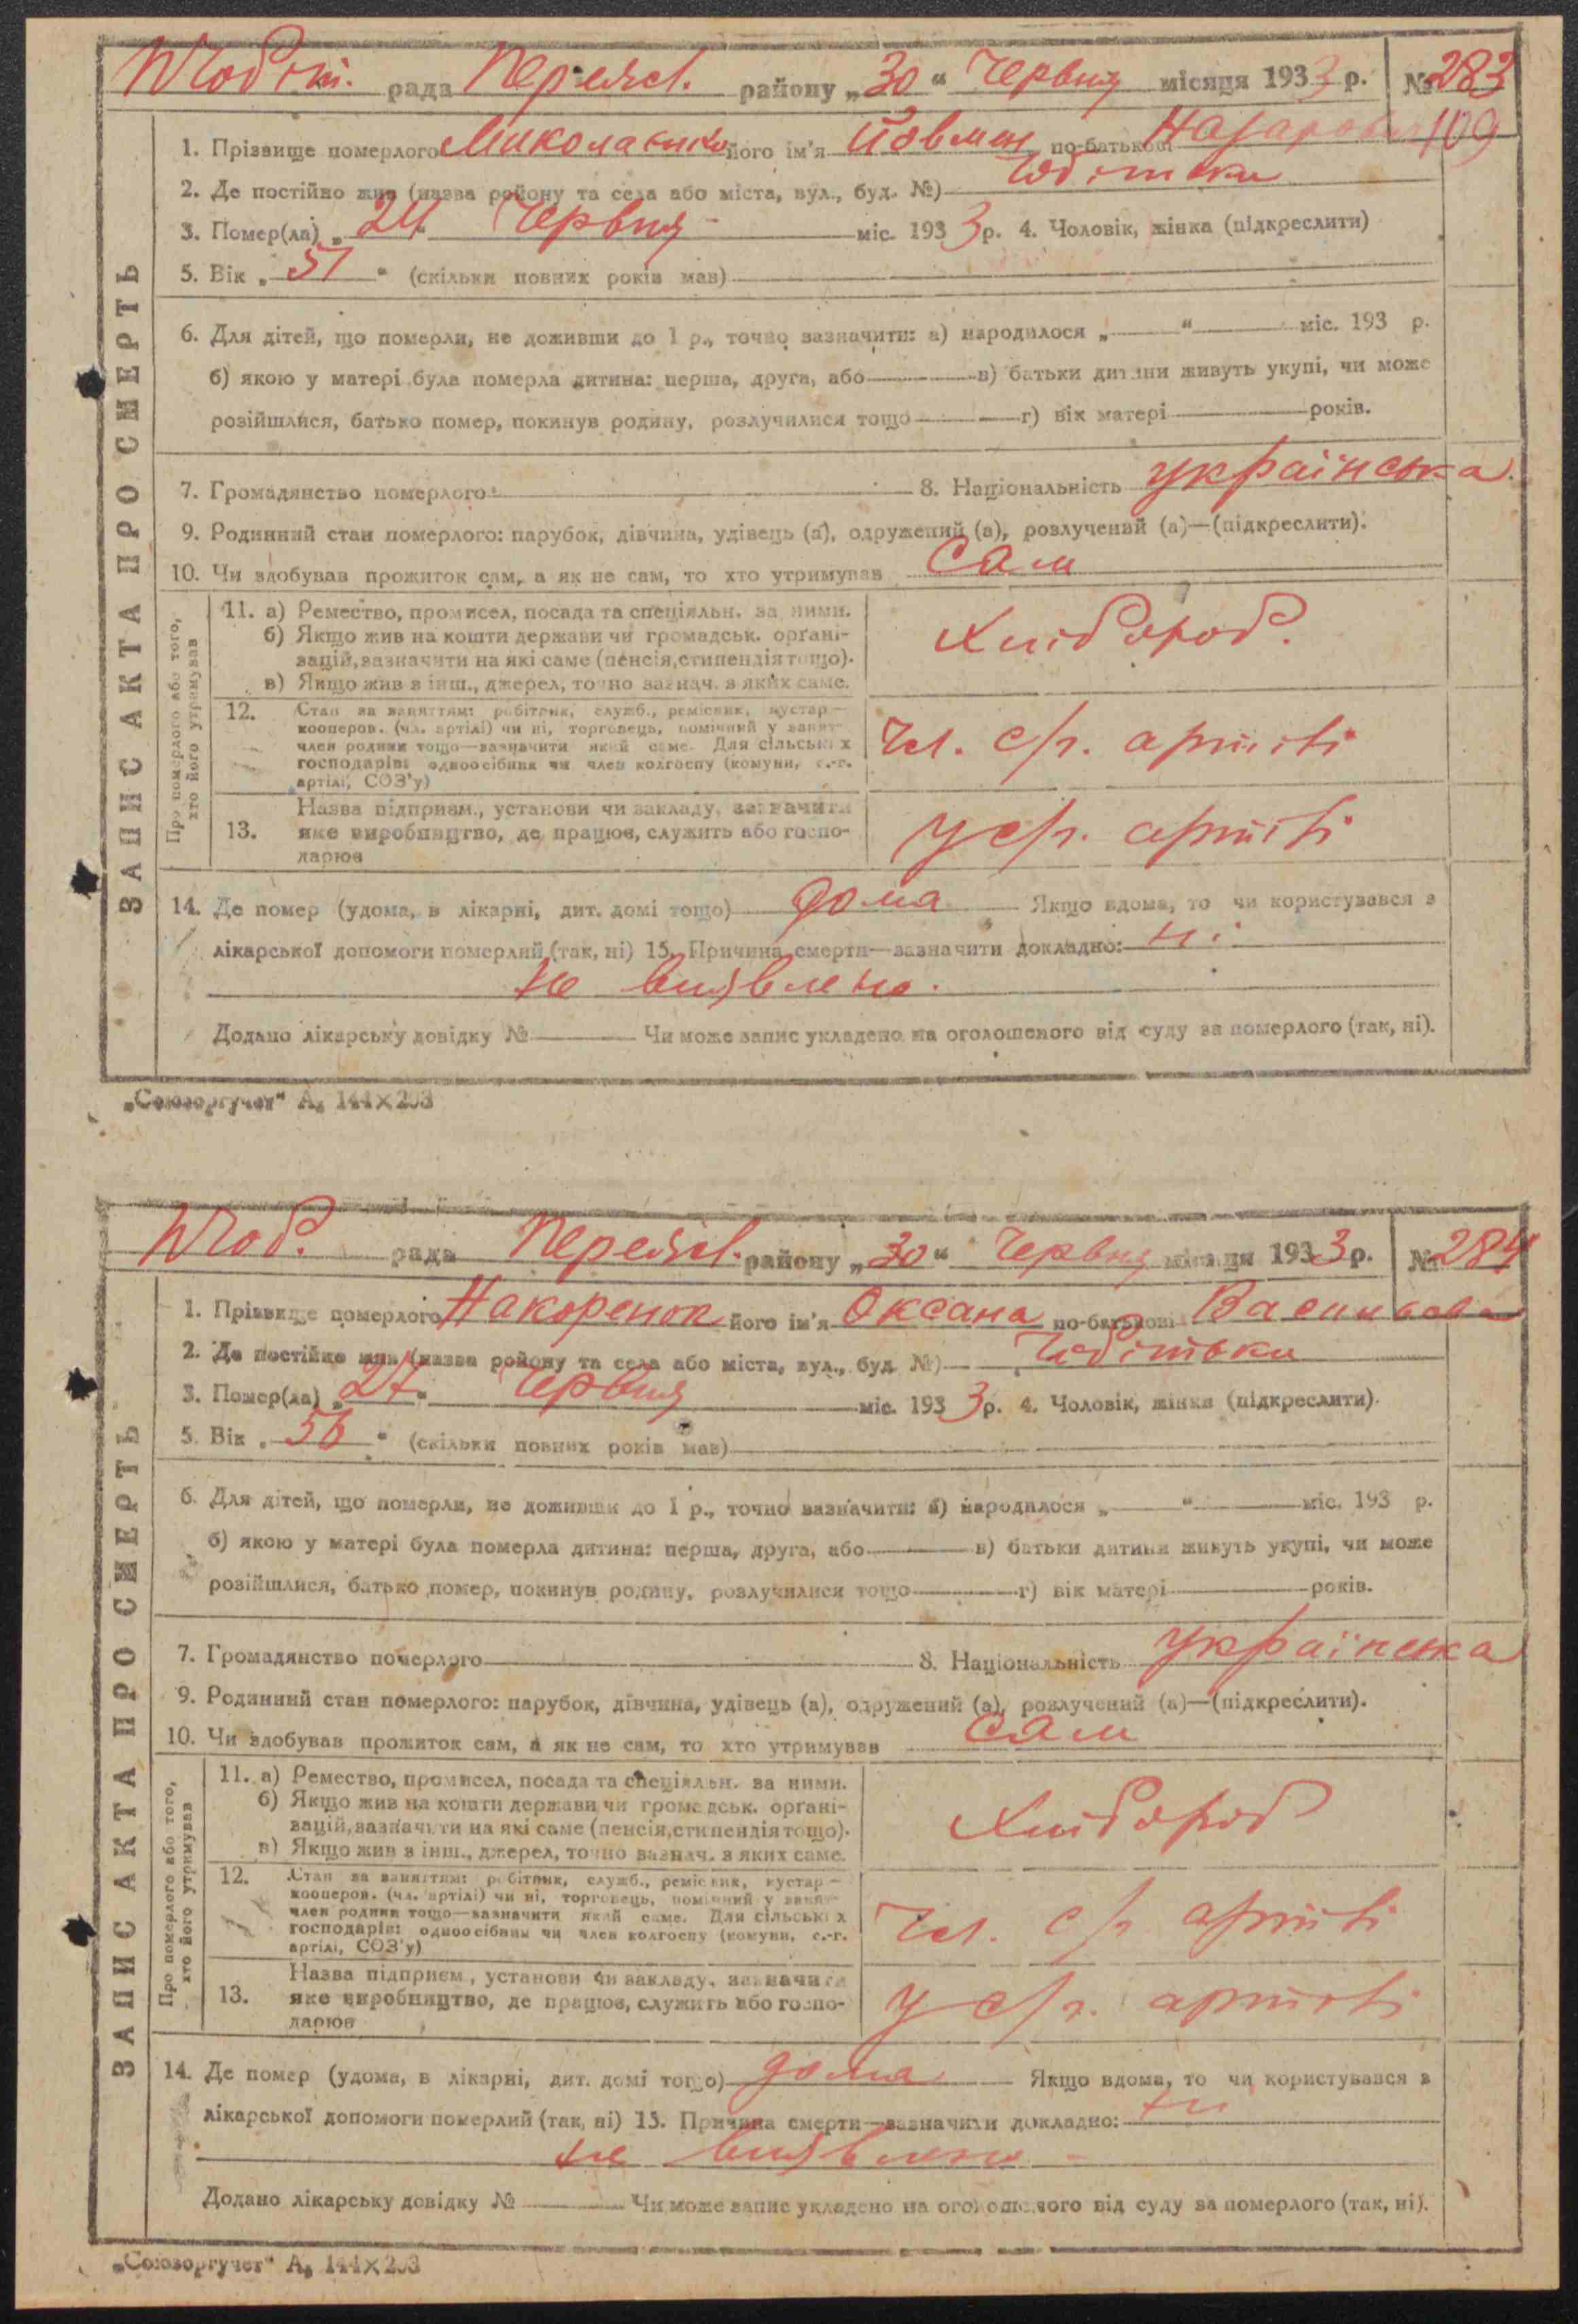 рада Переясл. району „30“ Червня місяця 1933 р. № 283
109
1. Прізвище померлого його ім'я по-батькові Назарович
2. Де постійно жив (назва району та села або міста, вул., буд. №)
3. Помер(ла) „24“ Червня міс. 1933 р. 4. Чоловік, жінка (підкреслити)
5. Вік „57“ (скільки повних років мав)
6. Для дітей, що померли, не доживши до 1 р., точно зазначити: а) народилося „ “ міс. 193 р.
б) якою у матері була померла дитина: перша, друга, або в) батьки дитини живуть укупі, чи може
розійшлися, батько помер, покинув родину, розлучилися тощо г) вік матері років.
7. Громадянство померлого 8. Національність українська
9. Родинний стан померлого: парубок, дівчина, удівець (а), одружений (а), розлучений (а)—(підкреслити).
10. Чи здобував прожиток сам, а як не сам, то хто утримував Сам
ЗАПИС АКТА ПРО СМЕРТЬ
Про померлого або того, хто його утримував
11. а) Ремество, промисел, посада та спеціяльн. за ними.
б) Якщо жив на кошти держави чи громадськ. органі-
зацій, зазначити на які саме (пенсія, стипендія тощо).
в) Якщо жив з інш., джерел, точно зазнач. з яких саме.
Хлібороб.
12. Стан за заняттям: робітник, служб., ремісник, кустар—
кооперов. (чл. артілі) чи ні, торговець, помічний у занят-
член родини тощо—зазначити який саме. Для сільських
господарів: одноосібник чи член колгоспу (комуни, с.-г.
артілі, СОЗ'у)
Чл. с/г. артілі
13. Назва підприєм., установи чи закладу, зазначити
яке виробництво, де працює, служить або госпо-
дарює
У с/г. артілі
14. Де помер (удома, в лікарні, дит. домі тощо) дома Якщо вдома, то чи користувався з
лікарської допомоги померлий (так, ні) 15. Причина смерти—зазначити докладно: ні
не виявлено.
Додано лікарську довідку № Чи може запис укладено на оголошеного від суду за померлого (так, ні).
„Союзоргучет“ А₅ 144×203
рада Переясл. району „30“ Червня місяця 1933 р. № 284
1. Прізвище померлого його ім'я Оксана по-батькові Василівна
2. Де постійно жив (назва району та села або міста, вул., буд. №)
3. Помер(ла) „27“ Червня міс. 1933 р. 4. Чоловік, жінка (підкреслити).
5. Вік „56“ (скільки повних років мав)
6. Для дітей, що померли, не доживши до 1 р., точно зазначити: а) народилося „ “ міс. 193 р.
б) якою у матері була померла дитина: перша, друга, або в) батьки дитини живуть укупі, чи може
розійшлися, батько помер, покинув родину, розлучилися тощо г) вік матері років.
7. Громадянство померлого 8. Національність українська
9. Родинний стан померлого: парубок, дівчина, удівець (а), одружений (а), розлучений (а)—(підкреслити).
10. Чи здобував прожиток сам, а як не сам, то хто утримував сам
ЗАПИС АКТА ПРО СМЕРТЬ
Про померлого або того, хто його утримував
11. а) Ремество, промисел, посада та спеціяльн. за ними.
б) Якщо жив на кошти держави чи громадськ. органі-
зацій, зазначити на які саме (пенсія, стипендія тощо).
в) Якщо жив з інш., джерел, точно зазнач. з яких саме.
Хлібороб
12. Стан за заняттям: робітник, служб., ремісник, кустар—
кооперов. (чл. артілі) чи ні, торговець, помічний у занят-
член родини тощо—зазначити який саме. Для сільських
господарів: одноосібник чи член колгоспу (комуни, с.-г.
артілі, СОЗ'у)
Чл. с/г артілі
13. Назва підприєм., установи чи закладу, зазначити
яке виробництво, де працює, служить або госпо-
дарює
У с/г. артілі
14. Де помер (удома, в лікарні, дит. домі тощо) дома Якщо вдома, то чи користувався з
лікарської допомоги померлий (так, ні) 15. Причина смерти—зазначити докладно: ні
не виявлено
Додано лікарську довідку № Чи може запис укладено на оголошеного від суду за померлого (так, ні).
„Союзоргучет“ А₅ 144×203